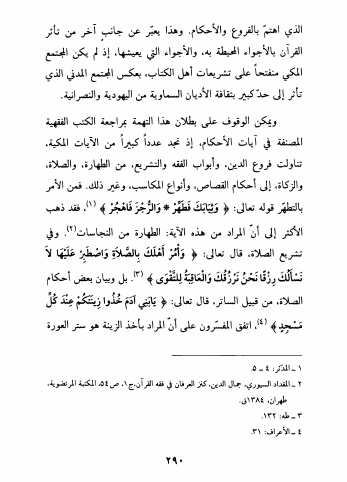 الذي اهتمّ بالفروع والأحكام. وهذا يعبّر عن جانبٍ آخر من تأثر
القرآن بالأجواء المحيطة به، والأجواء التي يعيشها، إذ لم يكن المجتمع
المكي منفتحاً على تشريعات أهل الكتاب، بعكس المجتمع المدني الذي
تأثر إلى حدّ كبير بثقافة الأديان السماوية من اليهودية والنصرانية.
ويمكن الوقوف على بطلان هذا التهمة بمراجعة الكتب الفقهية
المصنفة في آيات الأحكام، إذ نجد عدداً كبيراً من الآيات المكية،
تناولت فروع الدين، وأبواب الفقه والتشريع، من الطهارة، والصلاة،
والزكاة، إلى أحكام القصاص، وأنواع المكاسب، وغير ذلك. فمن الأمر
بالتطهّر قوله تعالى: ﴿ وَثِيَابَكَ فَطَهِّرْ * وَالرُّجْزَ فَاهْجُرْ ﴾ (١)، فقد ذهب
الأكثر إلى أنّ المراد من هذه الآية: الطهارة من النجاسات(٢). وفي
تشريع الصلاة، قال تعالى: ﴿ وَأْمُرْ أَهْلَكَ بِالصَّلَاةِ وَاصْطَبِرْ عَلَيْهَا لاَ
نَسْأَلُكَ رِزْقًا نَحْنُ نَرْزُقُكَ وَالْعَاقِبَةُ لِلتَّقْوَى ﴾ (٣). بل وبيان بعض أحكام
الصلاة، من قبيل الساتر، قال تعالى: ﴿ يَابَنِي آدَمَ خُذُوا زِينَتَكُمْ عِنْدَ كُلِّ
مَسْجِدٍ ﴾ (٤)، اتفق المفسّرون على أنّ المراد بأخذ الزينة هو ستر العورة
١ ـ المدّثر: ٤ ـ ٥.
٢ ـ المقداد السيوري، جمال الدين، كنز العرفان في فقه القرآن،ج١، ص٥٤، المكتبة المرتضوية،
طهران، ١٣٨٤ق.
٣ ـ طه: ١٣٢.
٤ ـ الأعراف: ٣١.
٢٩٠